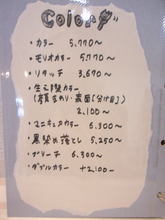 Color
・カラー 5,770〜
・モリオカラー 5,770〜
・リタッチ 3,670〜
・生え際カラー
(顔まわり・表面(分け目))
2,100〜
・マニキュアカラー 6,300〜
・黒染め落とし 5,250〜
・ブリーチ 6,300〜
・ダブルカラー +2,100〜